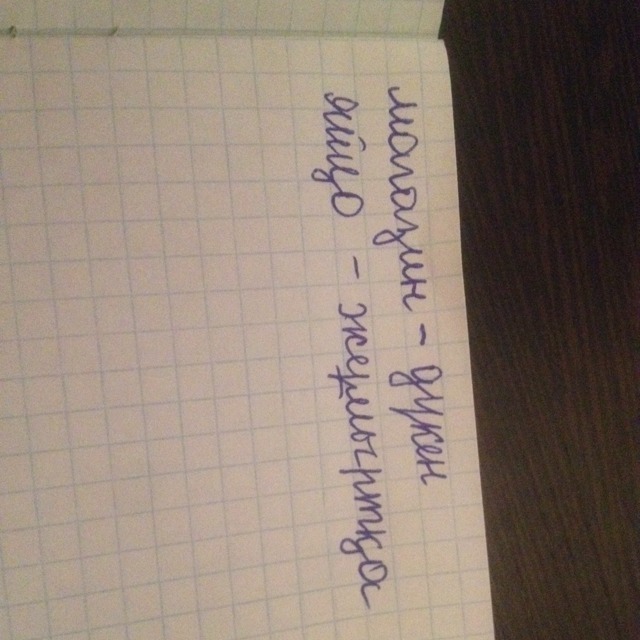 магазин - дукен
яйцо - жұмыртқа